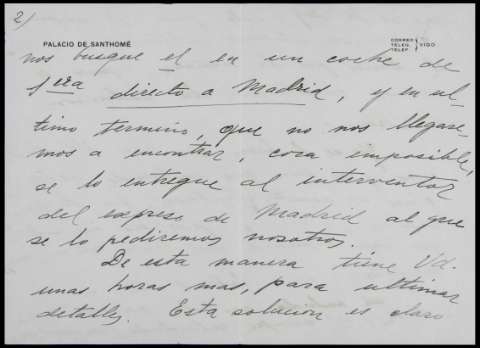 2)
PALACIO DE SANTHOMÉ
CORREO
TELEG.
TELEF.
VIGO
nos busque el en un coche de
1era directo a Madrid, y en ul-
timo termino, que no nos llegase-
mos a encontrar, cosa imposible,
se lo entregue al interventor
del expreso de Madrid al que
se lo pediremos nosotros.
De esta manera tiene Vd.
unas horas mas, para ultimar
detalles. Esta solucion es claro